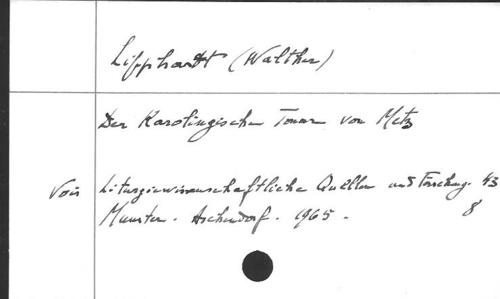 Lipphardt (Walther)
Der Karolingische Tonar von Metz
Voir Liturgiewissenschaftliche Quellen und Forschung. 43
Munster. Aschendorf. 1965. 8